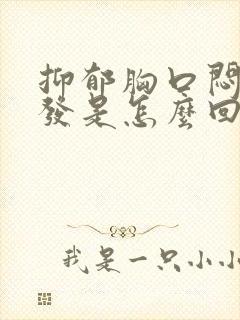 抑郁胸口悶
發是怎麼回
我是一只小小